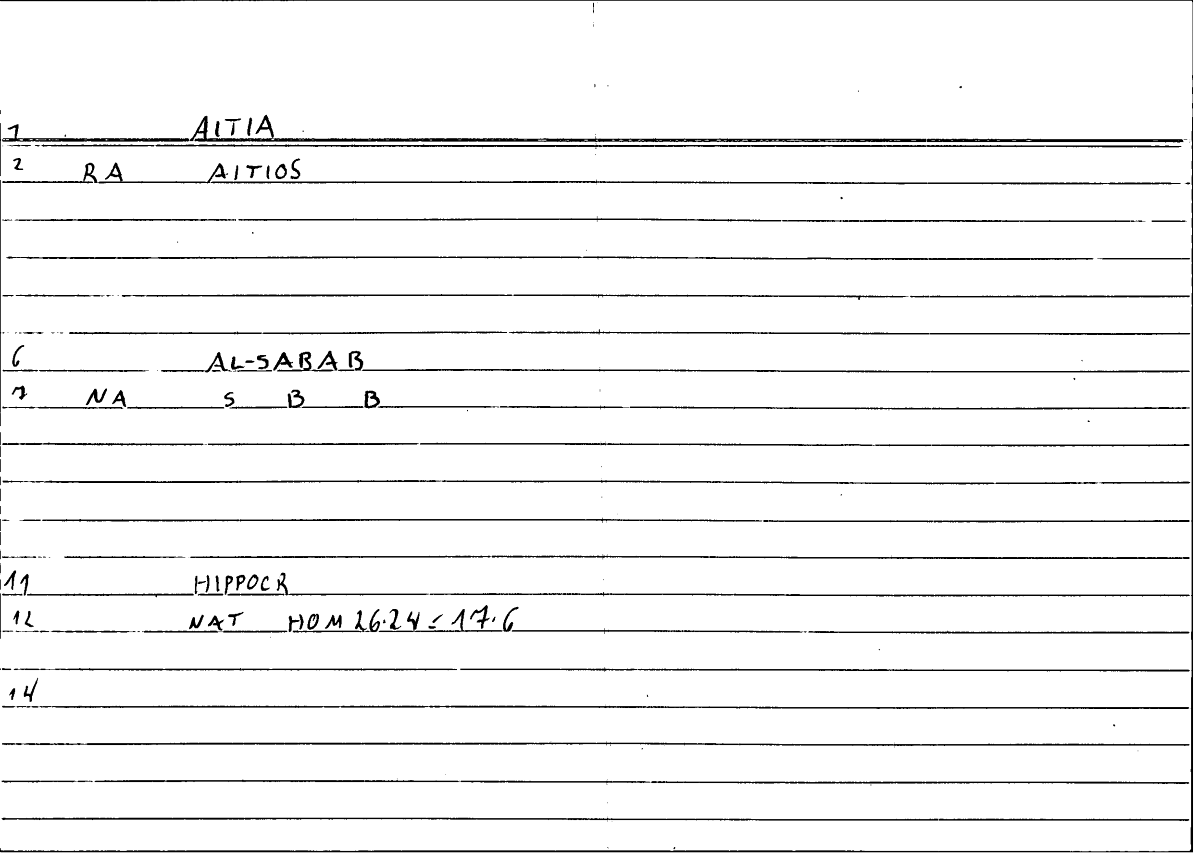 1 AITIA
2 RA AITIOS
6 AL-SABAB
7 NA S B B
11 HIPPOCR
12 NAT HOM 26.24 = 17.6
14